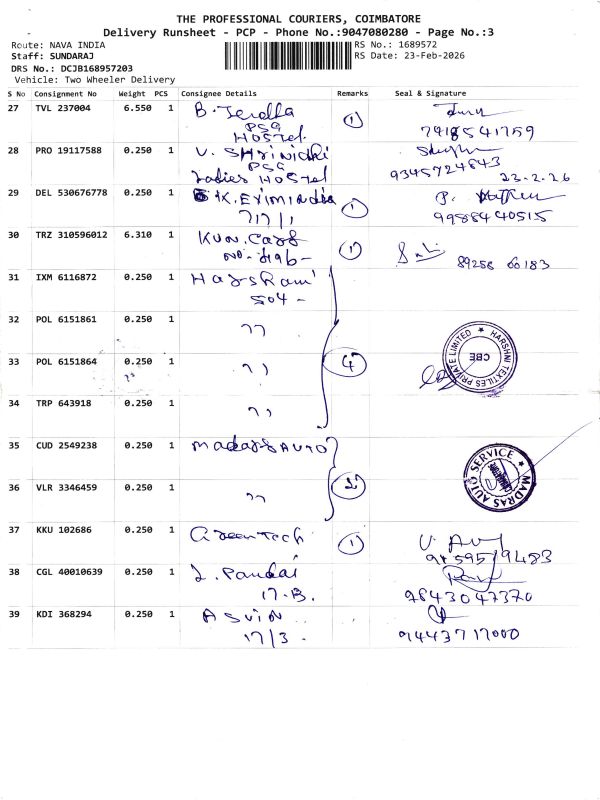 THE PROFESSIONAL COURIERS, COIMBATORE
Delivery Runsheet - PCP - Phone No.:9047080280 - Page No.:3
Route: NAVA INDIA
RS No.: 1689572
Staff: SUNDARAJ
RS Date: 23-Feb-2026
DRS No.: DCJB168957203
Vehicle: Two Wheeler Delivery
S No Consignment No Weight PCS Consignee Details Remarks Seal & Signature
27 TVL 237004 6.550 1 B. 1
PSG
Hostel.
7918541759
28 PRO 19117588 0.250 1 V. SHRINIdhi
PSG
Ladies Hostel
9345724843
23-2-26
29 DEL 530676778 0.250 1 K. EXIMINdia 1 P.
717/1
9988440515
30 TRZ 310596012 6.310 1 KUN. Cars 1
NO-
89258 00183
31 IXM 6116872 0.250 1 Harshani
504 -
32 POL 6151861 0.250 1 ''
33 POL 6151864 0.250 1 '' 4
HARSHNI TEXTILES PRIVATE LIMITED ★
CBE
34 TRP 643918 0.250 1 ''
35 CUD 2549238 0.250 1 Madras AUTO
MADRAS AUTO SERVICE ★
36 VLR 3346459 0.250 1 '' 2
37 KKU 102686 0.250 1 Green Tech 1 V.
9459519483
38 CGL 40010639 0.250 1
17-B.
9843047370
39 KDI 368294 0.250 1 ASVIN
17/3.
9443717000